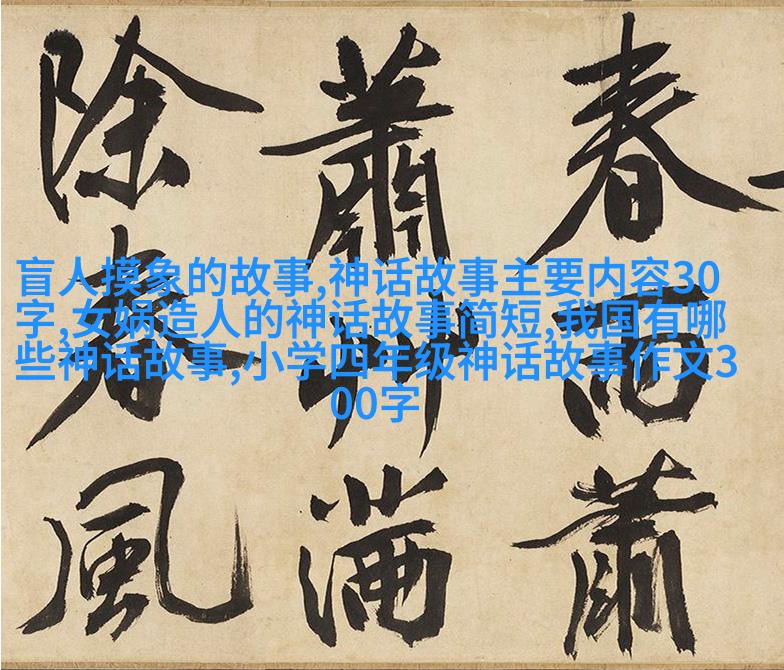 春雨蕭
蕭艸滿
除春風
盲人摸象的故事,神话故事主要内容30
字,女娲造人的神话故事简短,我国有哪
些神话故事,小学四年级神话故事作文3
00字